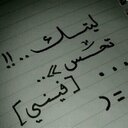 ليتك ..!!
تحس »..
[فيني]